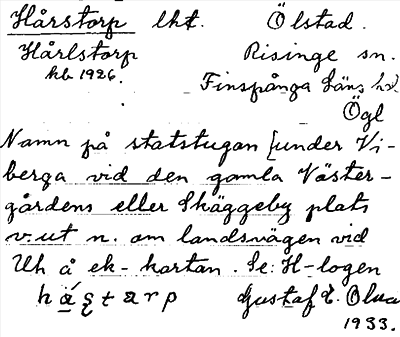 Hårstorp lht. Ölstad.
Hårlstorp Risinge sn.
kb 1926. Finspånga läns hd.
Ögl
Namn på statstugan [under Vi-
berga vid den gamla Väster-
gårdens eller Skäggeby plats
v. ut n. om landsvägen vid
Uh å ek-kartan. Se: H-logen
Gustaf E.
1933.